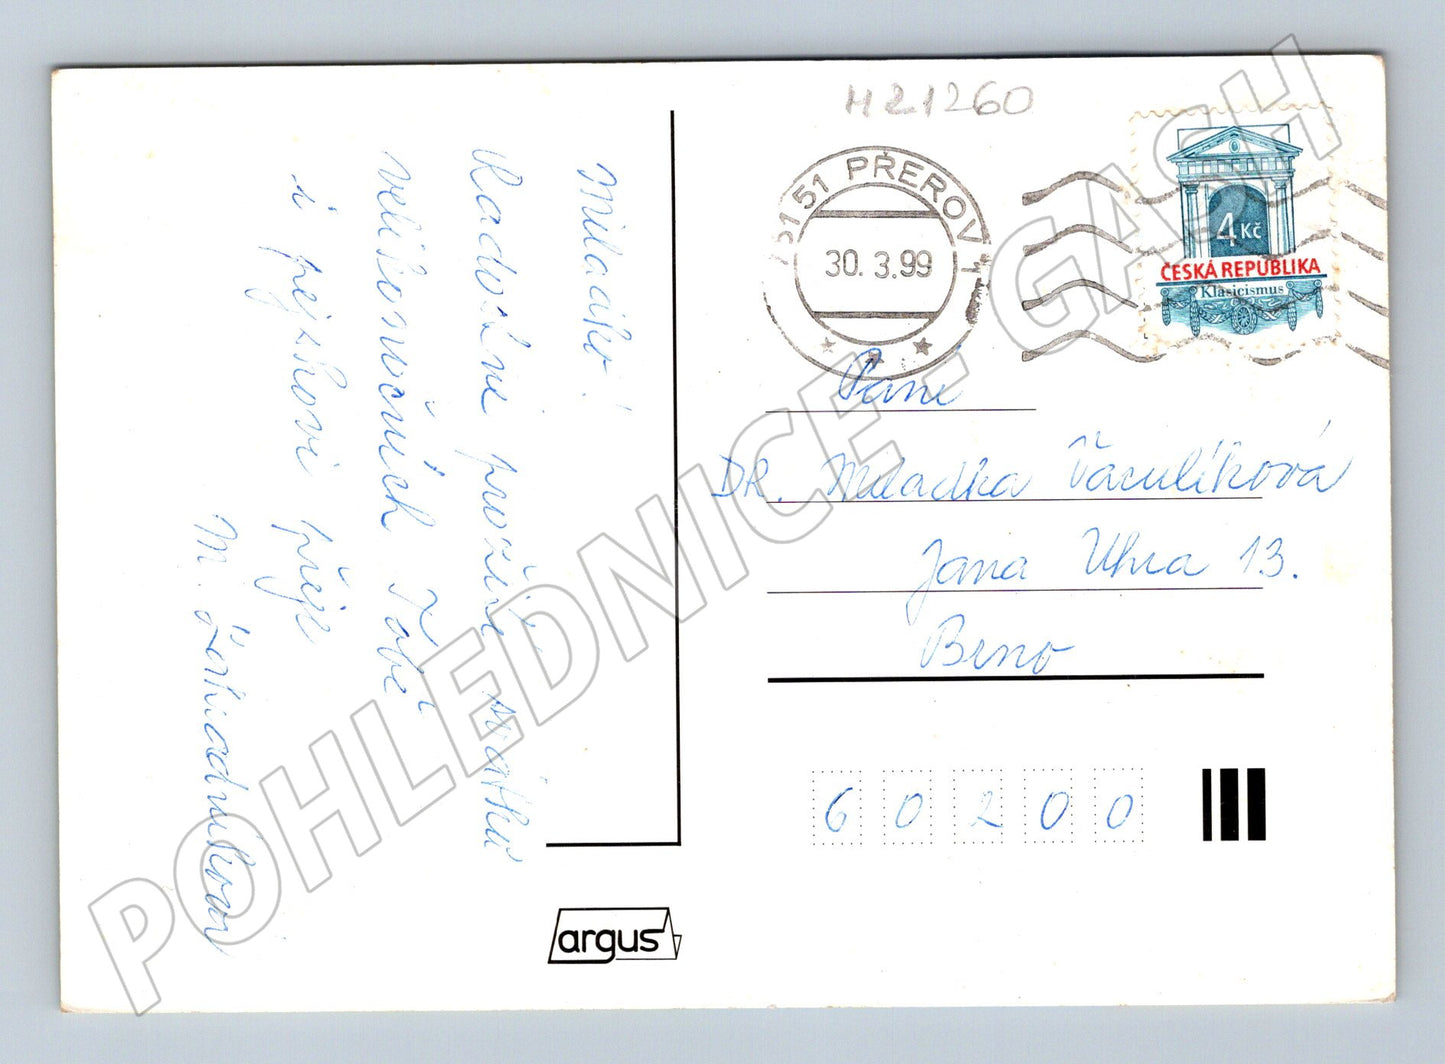 Miladko!
Radostné prožití svátků
velikonočních Tobě
i pejskovi přeje
M.
H21260
751 51 PŘEROV 1
30.3.99
4 Kč
ČESKÁ REPUBLIKA
Klasicismus
Paní
DR. Miladka Vaculíková
Jana Uhra 13.
Brno
60200
argus
POHLEDNICE - GASH